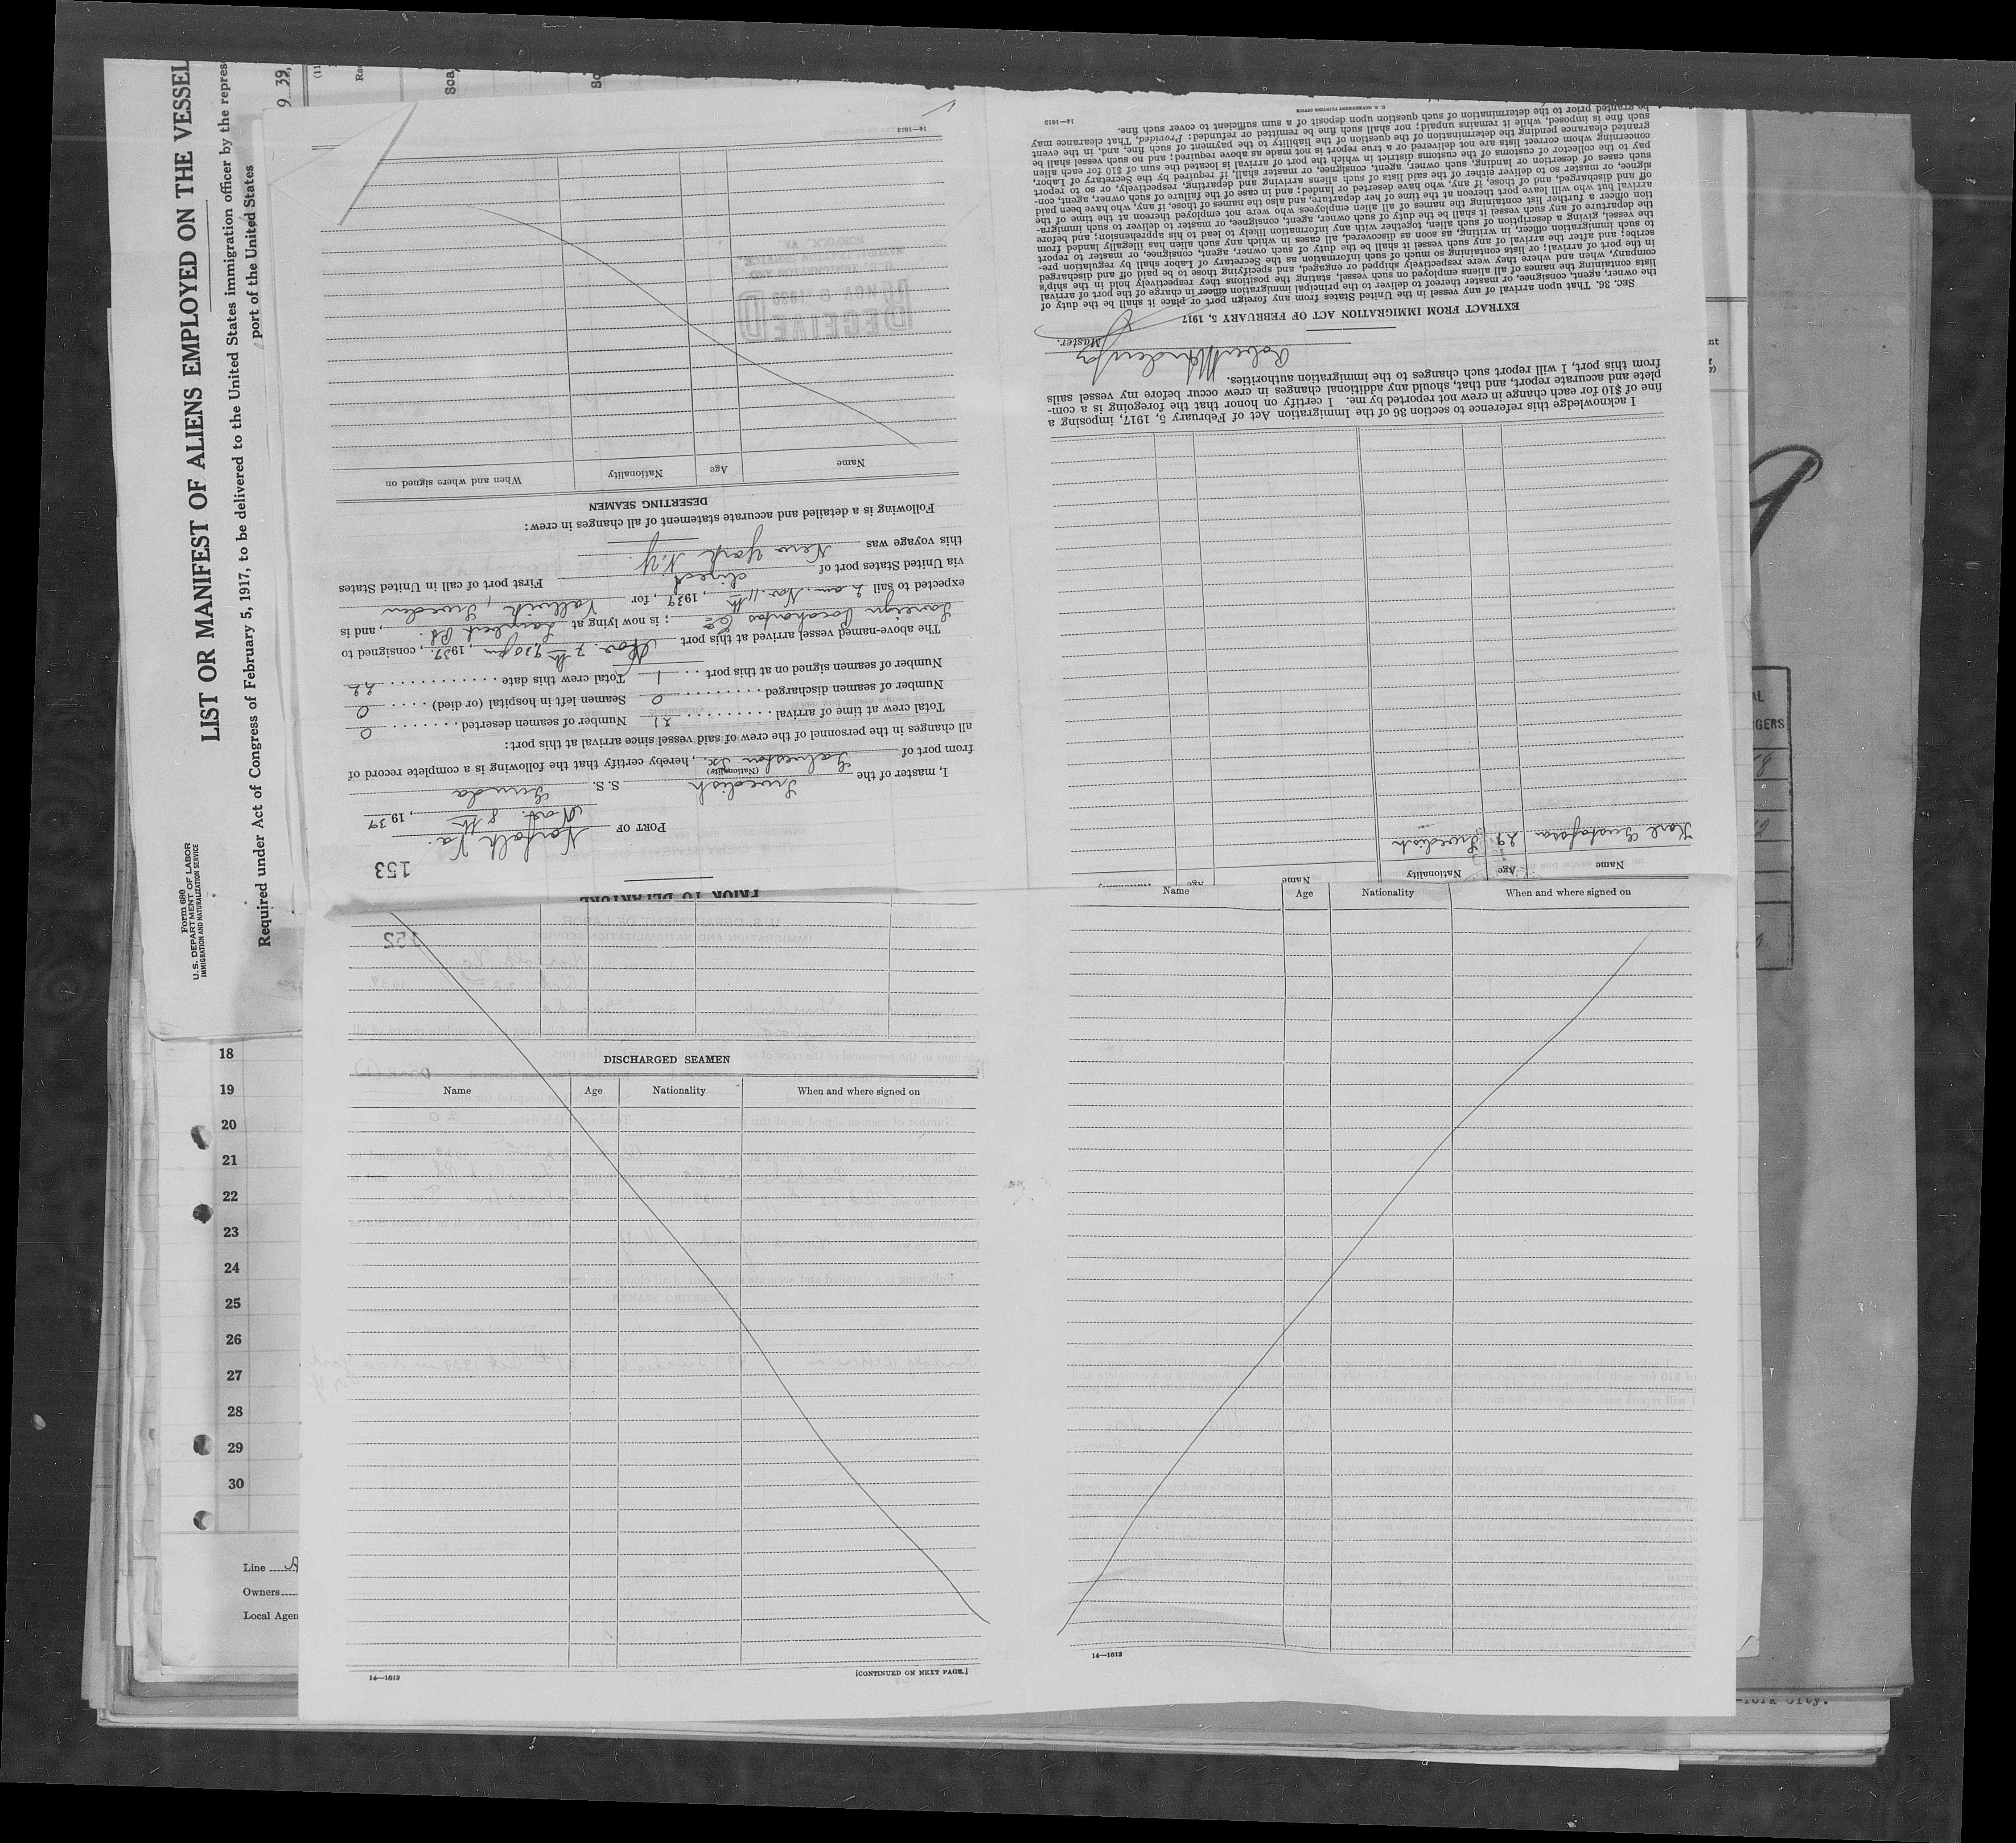 LIST OR MANIFEST OF ALIENS EMPLOYED ON THE VESSEL
Required under Act of Congress of February 5, 1917, to be delivered to the United States immigration officer by the repres
port of the United States
Form 680
U. S. DEPARTMENT OF LABOR
IMMIGRATION AND NATURALIZATION SERVICE
18
19
20
21
22
23
24
25
26
27
28
29
30
Line
Owners
Local Agen
153
PORT OF Norfolk Va.
Nov. 8th, 1939
I, master of the Swedish S. S. Gunda
(Nationality)
from port of Galveston Tx., hereby certify that the following is a complete record of
all changes in the personnel of the crew of said vessel since arrival at this port:
Total crew at time of arrival 21 Number of seamen deserted 0
Number of seamen discharged 0 Seamen left in hospital (or died) 0
Number of seamen signed on at this port 1 Total crew this date 22
The above-named vessel arrived at this port Nov. 7th 9.30 pm, 1939, consigned to
Foreign Pocahontas Co; is now lying at Lambert Pt., and is
expected to sail 2 am. Nov. 11th, 1939, for Vallvik, Sweden
via United States port of direct First port of call in United States
this voyage was New York N.Y.
Following is a detailed and accurate statement of all changes in crew:
DESERTING SEAMEN
Name Age Nationality When and where signed on
RECEIVED
NOV 9 1939
NORFOLK, VA.
14—1613
Name Age Nationality Name Age
Karl Gustafsson 29 Swedish
I acknowledge this reference to section 36 of the Immigration Act of February 5, 1917, imposing a
fine of $10 for each change in crew not reported by me. I certify on honor that the foregoing is a com-
plete and accurate report, and that, should any additional changes in crew occur before my vessel sails
from this port, I will report such changes to the immigration authorities.
Master.
EXTRACT FROM IMMIGRATION ACT OF FEBRUARY 5, 1917
SEC. 36. That upon arrival of any vessel in the United States from any foreign port or place it shall be the duty of
the owner, agent, consignee, or master thereof to deliver to the principal immigration officer in charge of the port of arrival
lists containing the names of all aliens employed on such vessel, stating the positions they respectively hold in the ship's
company, when and where they were respectively shipped or engaged, and specifying those to be paid off and discharged
in the port of arrival; or lists containing so much of such information as the Secretary of Labor shall by regulation pre-
scribe; and after the arrival of any such vessel it shall be the duty of such owner, agent, consignee, or master to report
to such immigration officer, in writing, as soon as discovered, all cases in which any such alien has illegally landed from
the vessel, giving a description of such alien, together with any information likely to lead to his apprehension; and before
the departure of any such vessel it shall be the duty of such owner, agent, consignee, or master to deliver to such immigra-
tion officer a further list containing the names of all alien employees who were not employed thereon at the time of the
arrival but who will leave port thereon at the time of her departure, and also the names of those, if any, who have been paid
off and discharged, and of those, if any, who have deserted or landed; and in case of the failure of such owner, agent, con-
signee, or master so to deliver either of the said lists of such aliens arriving and departing, respectively, or so to report
such cases of desertion or landing, such owner, agent, consignee, or master shall, if required by the Secretary of Labor,
pay to the collector of customs of the customs district in which the port of arrival is located the sum of $10 for each alien
concerning whom correct lists are not delivered or a true report is not made as above required; and no such vessel shall be
granted clearance pending the determination of the question of the liability to the payment of such fine, and, in the event
such fine is imposed, while it remains unpaid; nor shall such fine be remitted or refunded: Provided, That clearance may
be granted prior to the determination of such question upon deposit of a sum sufficient to cover such fine.
14—1613
U. S. GOVERNMENT PRINTING OFFICE
PRIOR TO DEPARTURE
152
DISCHARGED SEAMEN
Name Age Nationality When and where signed on
14—1613
[CONTINUED ON NEXT PAGE.]
Name Age Nationality When and where signed on
14—1613
York City.